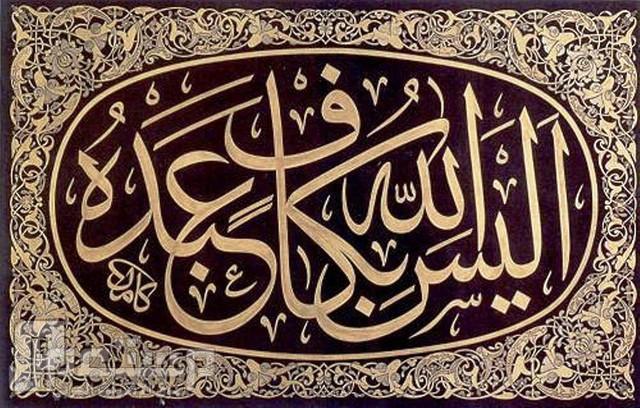 اَلَيْسَ اللّٰهُ بِكَافٍ عَبْدَهُ